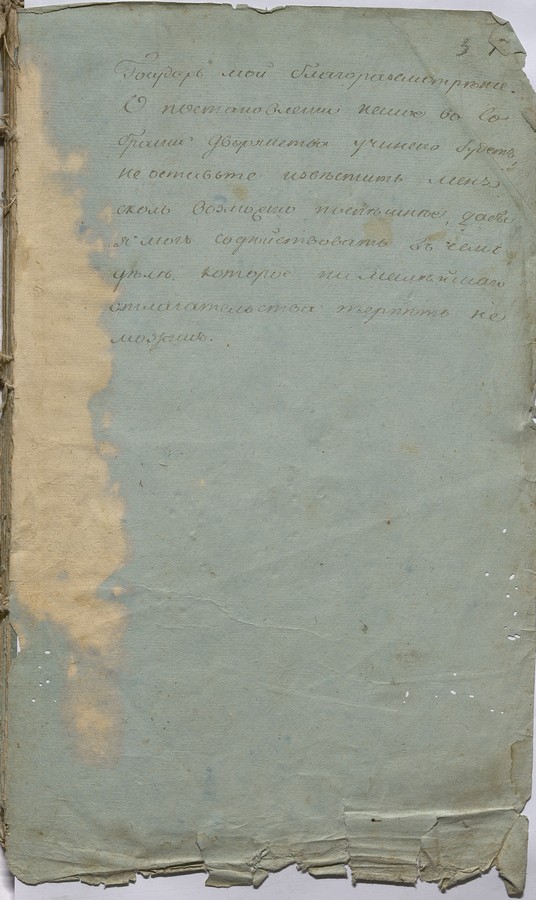 5 7
Государь мой благорассмотрение.
О постановлении какие во Со
брании Дворянства учинено будетъ
не оставьте известить меня
сколь возможно поспешнее, дабы
я могъ содействовать въ чемъ
деле которое ни малейшаго
отлагательства терпеть не
можетъ.